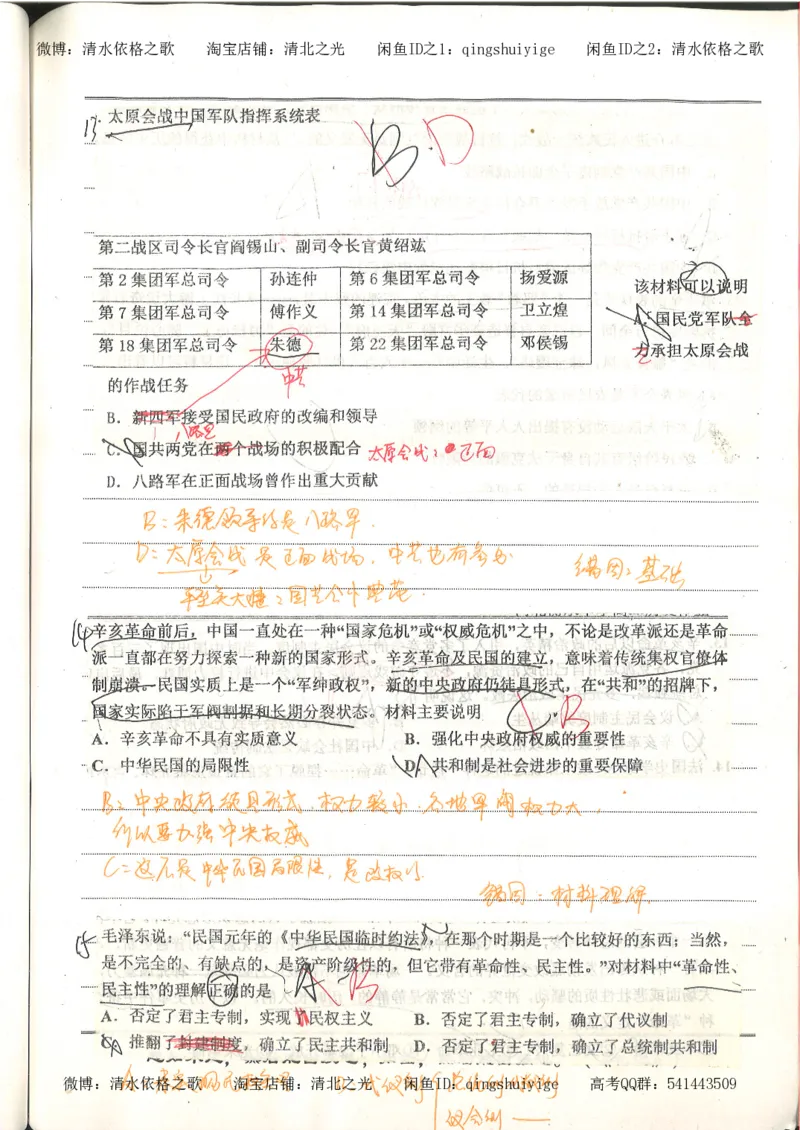 微博：清水依格之歌 淘宝店铺：清北之光 闲鱼ID之1：qingshuiyige 闲鱼ID之2：清水依格之歌
13. 太原会战中国军队指挥系统表
B. D
第二战区司令长官阎锡山、副司令长官黄绍竑
第2集团军总司令 孙连仲 第6集团军总司令 扬爱源
第7集团军总司令 傅作义 第14集团军总司令 卫立煌
第18集团军总司令 朱德 第22集团军总司令 邓侯锡
中共
该材料可以说明
A.国民党军队全
力承担太原会战
的作战任务
B. 新四军接受国民政府的改编和领导
八路军
C. 国共两党在两个战场的积极配合 太原会战：正面
D. 八路军在正面战场曾作出重大贡献
B：朱德领导的是八路军.
D：太原会战是正面战场，中共也有参与
错因：基础
平型关大捷：国共合作典范
14 辛亥革命前后，中国一直处在一种“国家危机”或“权威危机”之中，不论是改革派还是革命
派一直都在努力探索一种新的国家形式。辛亥革命及民国的建立，意味着传统集权官僚体
制崩溃。民国实质上是一个“军绅政权”，新的中央政府仍徒具形式，在“共和”的招牌下，
国家实际陷于军阀割据和长期分裂状态。材料主要说明
B
A．辛亥革命不具有实质意义 B．强化中央政府权威的重要性
C．中华民国的局限性 D．共和制是社会进步的重要保障
B：中央政府徒具形式，权力较小，各地军阀权力大，
所以要加强中央权威
C：这不是中华民国局限性，是政权
错因：材料理解
15 毛泽东说：“民国元年的《中华民国临时约法》，在那个时期是一个比较好的东西；当然，
是不完全的、有缺点的，是资产阶级性的，但它带有革命性、民主性。”对材料中“革命性、
民主性”的理解正确的是 A B
A．否定了君主专制，实现了民权主义 B．否定了君主专制，确立了代议制
C．推翻了封建制度，确立了民主共和制 D．否定了君主专制，确立了总统制共和制
微博：清水依格之歌 淘宝店铺：清北之光 闲鱼ID：qingshuiyige 高考QQ群：541443509